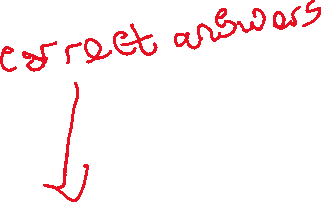 correct answers